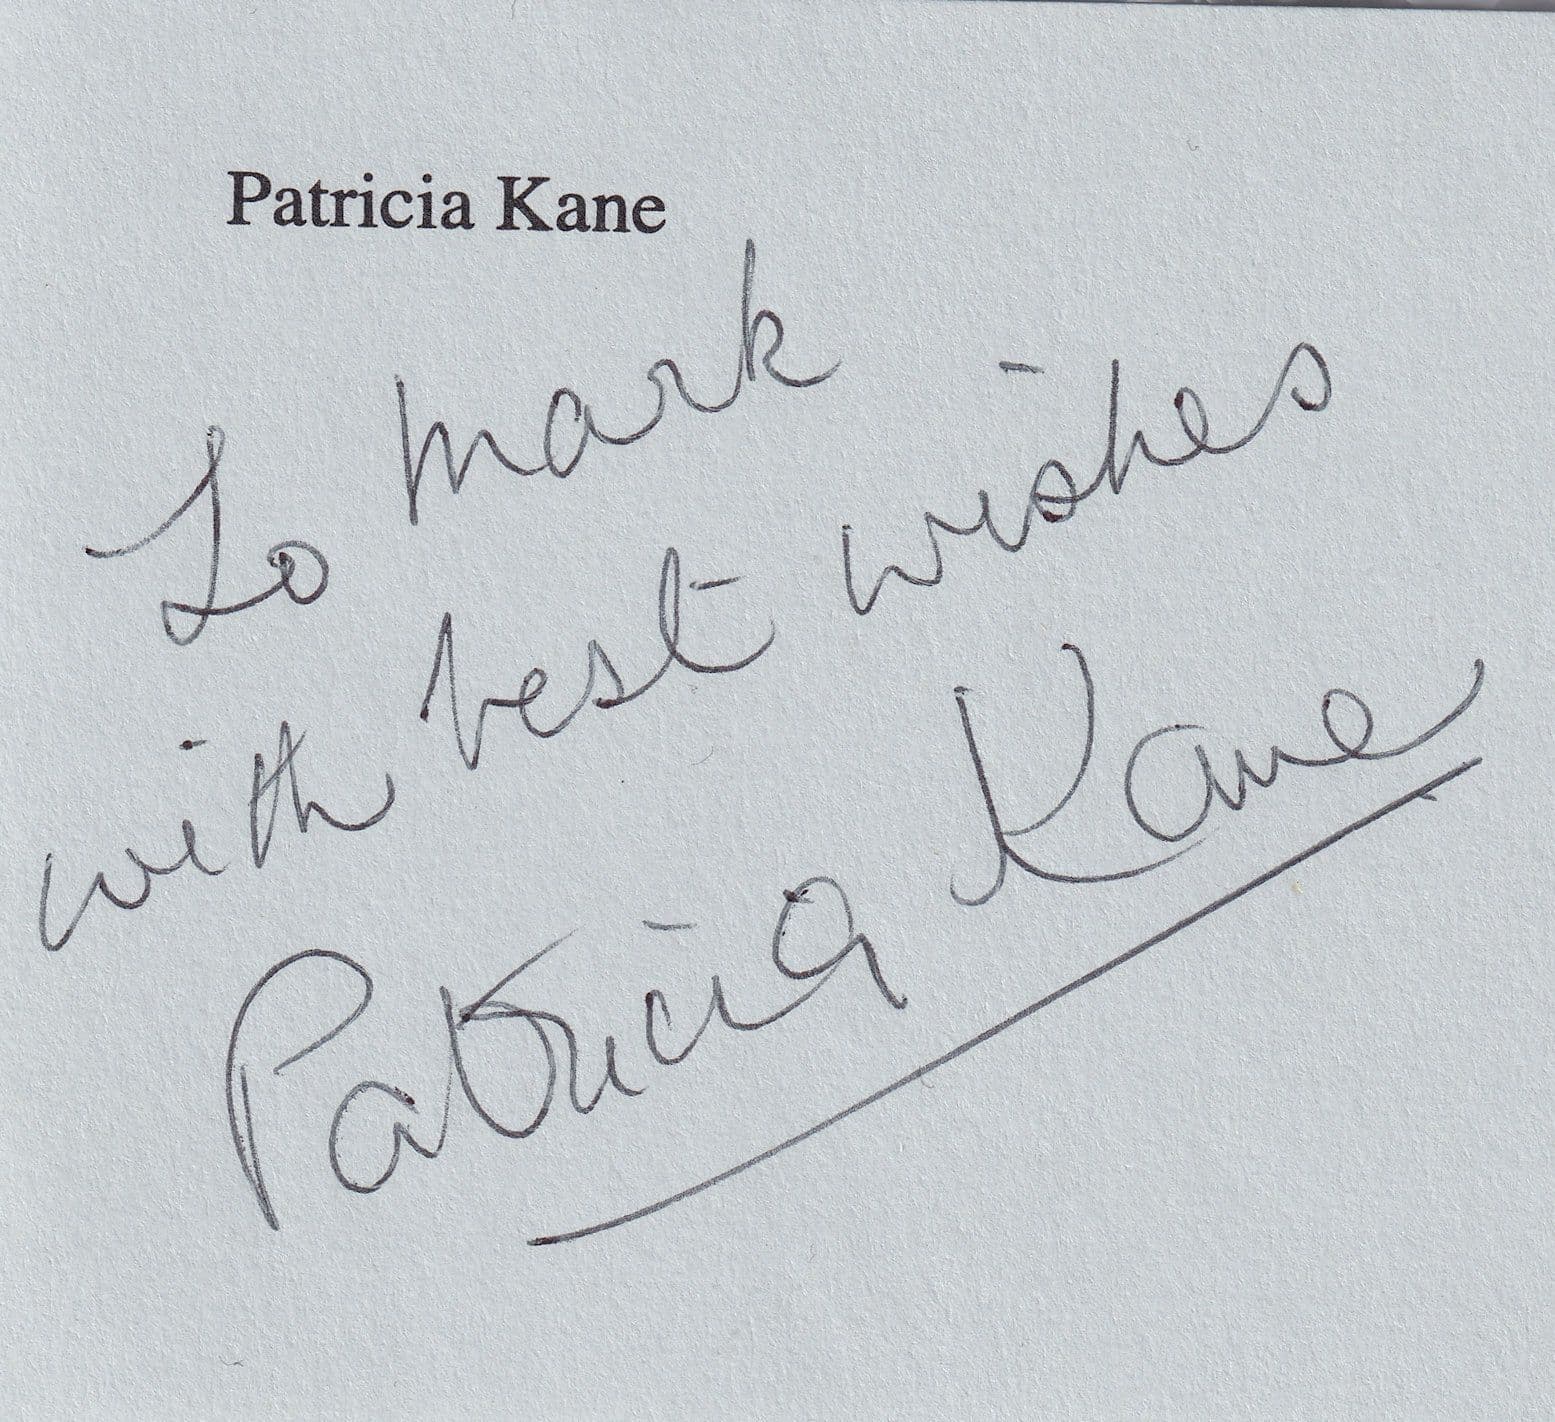 Patricia Kane
To Mark
with best wishes
Patricia Kane